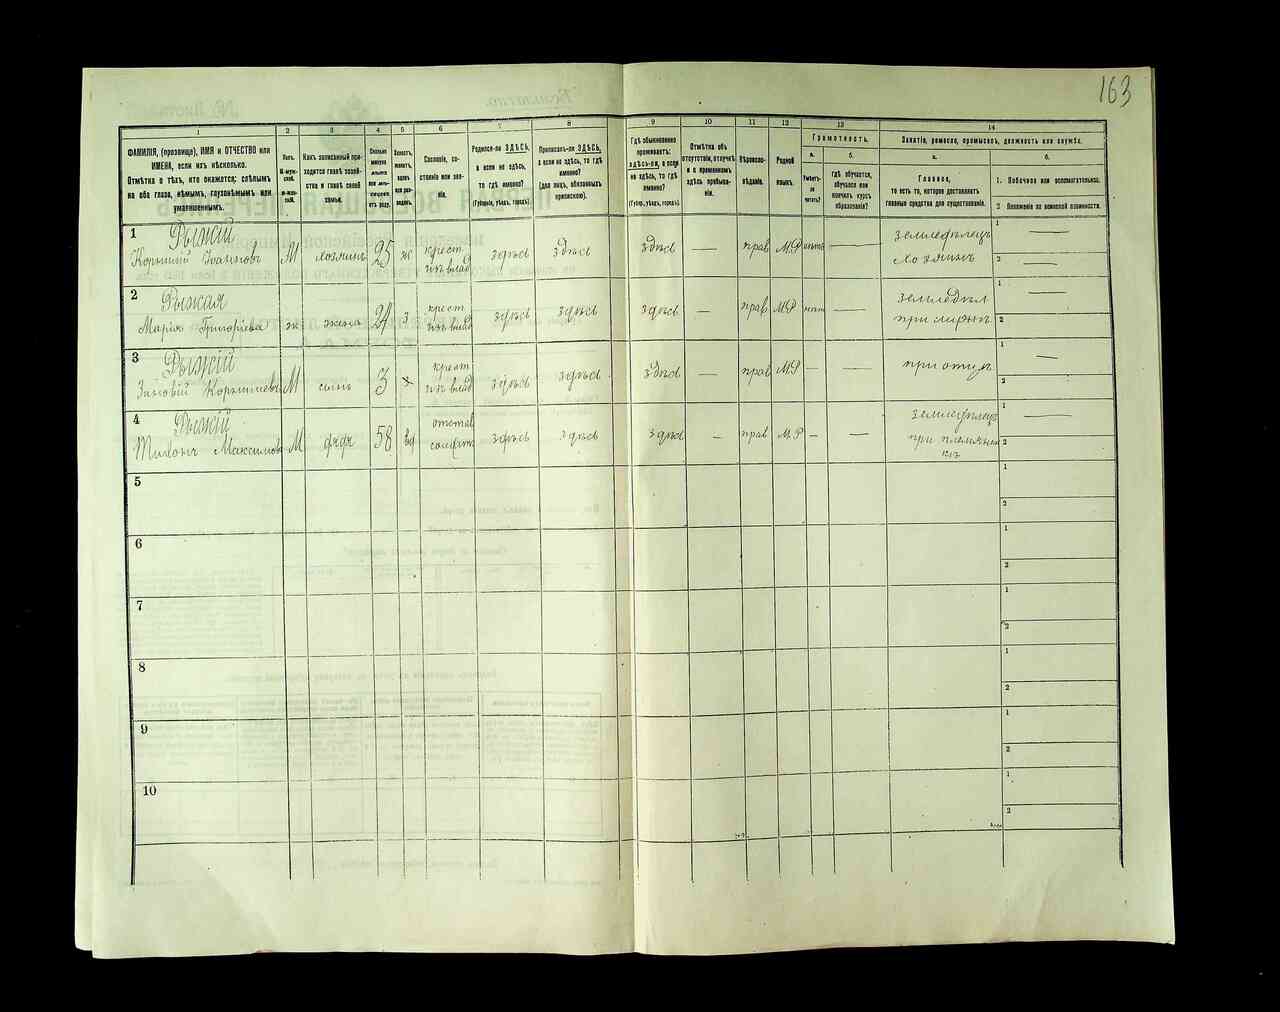 163
1 2 3 4 5 6 7 8 9 10 11 12 13 14
ФАМИЛІЯ, (прозвище), ИМЯ и ОТЧЕСТВО или
ИМЕНА, если ихъ нѣсколько.
Отмѣтка о тѣхъ, кто окажется: слѣпымъ
на оба глаза, нѣмымъ, глухонѣмымъ или
умалишеннымъ.
Полъ.
М-муж-
ской.
Ж-жен-
скій.
Какъ записанный при-
ходится главѣ хозяй-
ства и главѣ своей
семьи.
Сколько
минуло
лѣтъ
или мѣ-
сяцевъ
отъ роду.
Холостъ,
женатъ,
вдовъ
или раз-
веденъ.
Сословіе, со-
стояніе или зва-
ніе.
Родился-ли ЗДѢСЬ,
а если не здѣсь,
то гдѣ именно?
(Губернія, уѣздъ, городъ).
Приписанъ-ли ЗДѢСЬ,
а если не здѣсь, то гдѣ
именно?
(для лицъ, обязанныхъ
припискою).
Гдѣ обыкновенно
проживаетъ:
здѣсь-ли, а если
не здѣсь, то гдѣ
именно?
(Губерн., уѣздъ, городъ).
Отмѣтка объ
отсутствіи, отлучкѣ
и о временномъ
здѣсь пребыва-
ніи.
Вѣроиспо-
вѣданіе.
Родной
языкъ.
Грамотность.
а.
Умѣетъ-
ли
читать?
б.
Гдѣ обучается,
обучался или
кончилъ курсъ
образованія?
Занятіе, ремесло, промыселъ, должность или служба.
а.
Главное,
то есть то, которое доставляетъ
главныя средства для существованія.
б.
1. Побочное или вспомогательное.
2 Положеніе по воинской повинности.
1 Рыжій
Іоановъ М хозяинъ 25 ж крест изъ влад здѣсь здѣсь здѣсь — прав М.Р — земледѣлецъ хозяинъ 1 — 2 —
2 Рыжая
Марія Григоріева ж жена 24 з крест изъ влад здѣсь здѣсь здѣсь — прав М.Р — земледѣл 1 — 2
3 Рыжій
М сынъ 3 х крест изъ влад здѣсь здѣсь здѣсь — прав М.Р — — при отцѣ 1 — 2
4 Рыжій
Тихонъ Максимовъ М дядя 58 вд отстав солдатъ здѣсь здѣсь здѣсь — прав М.Р — — земледѣлецъ при племян 1 — 2
5 1 2
6 1 2
7 1 2
8 1 2
9 1 2
10 1 2